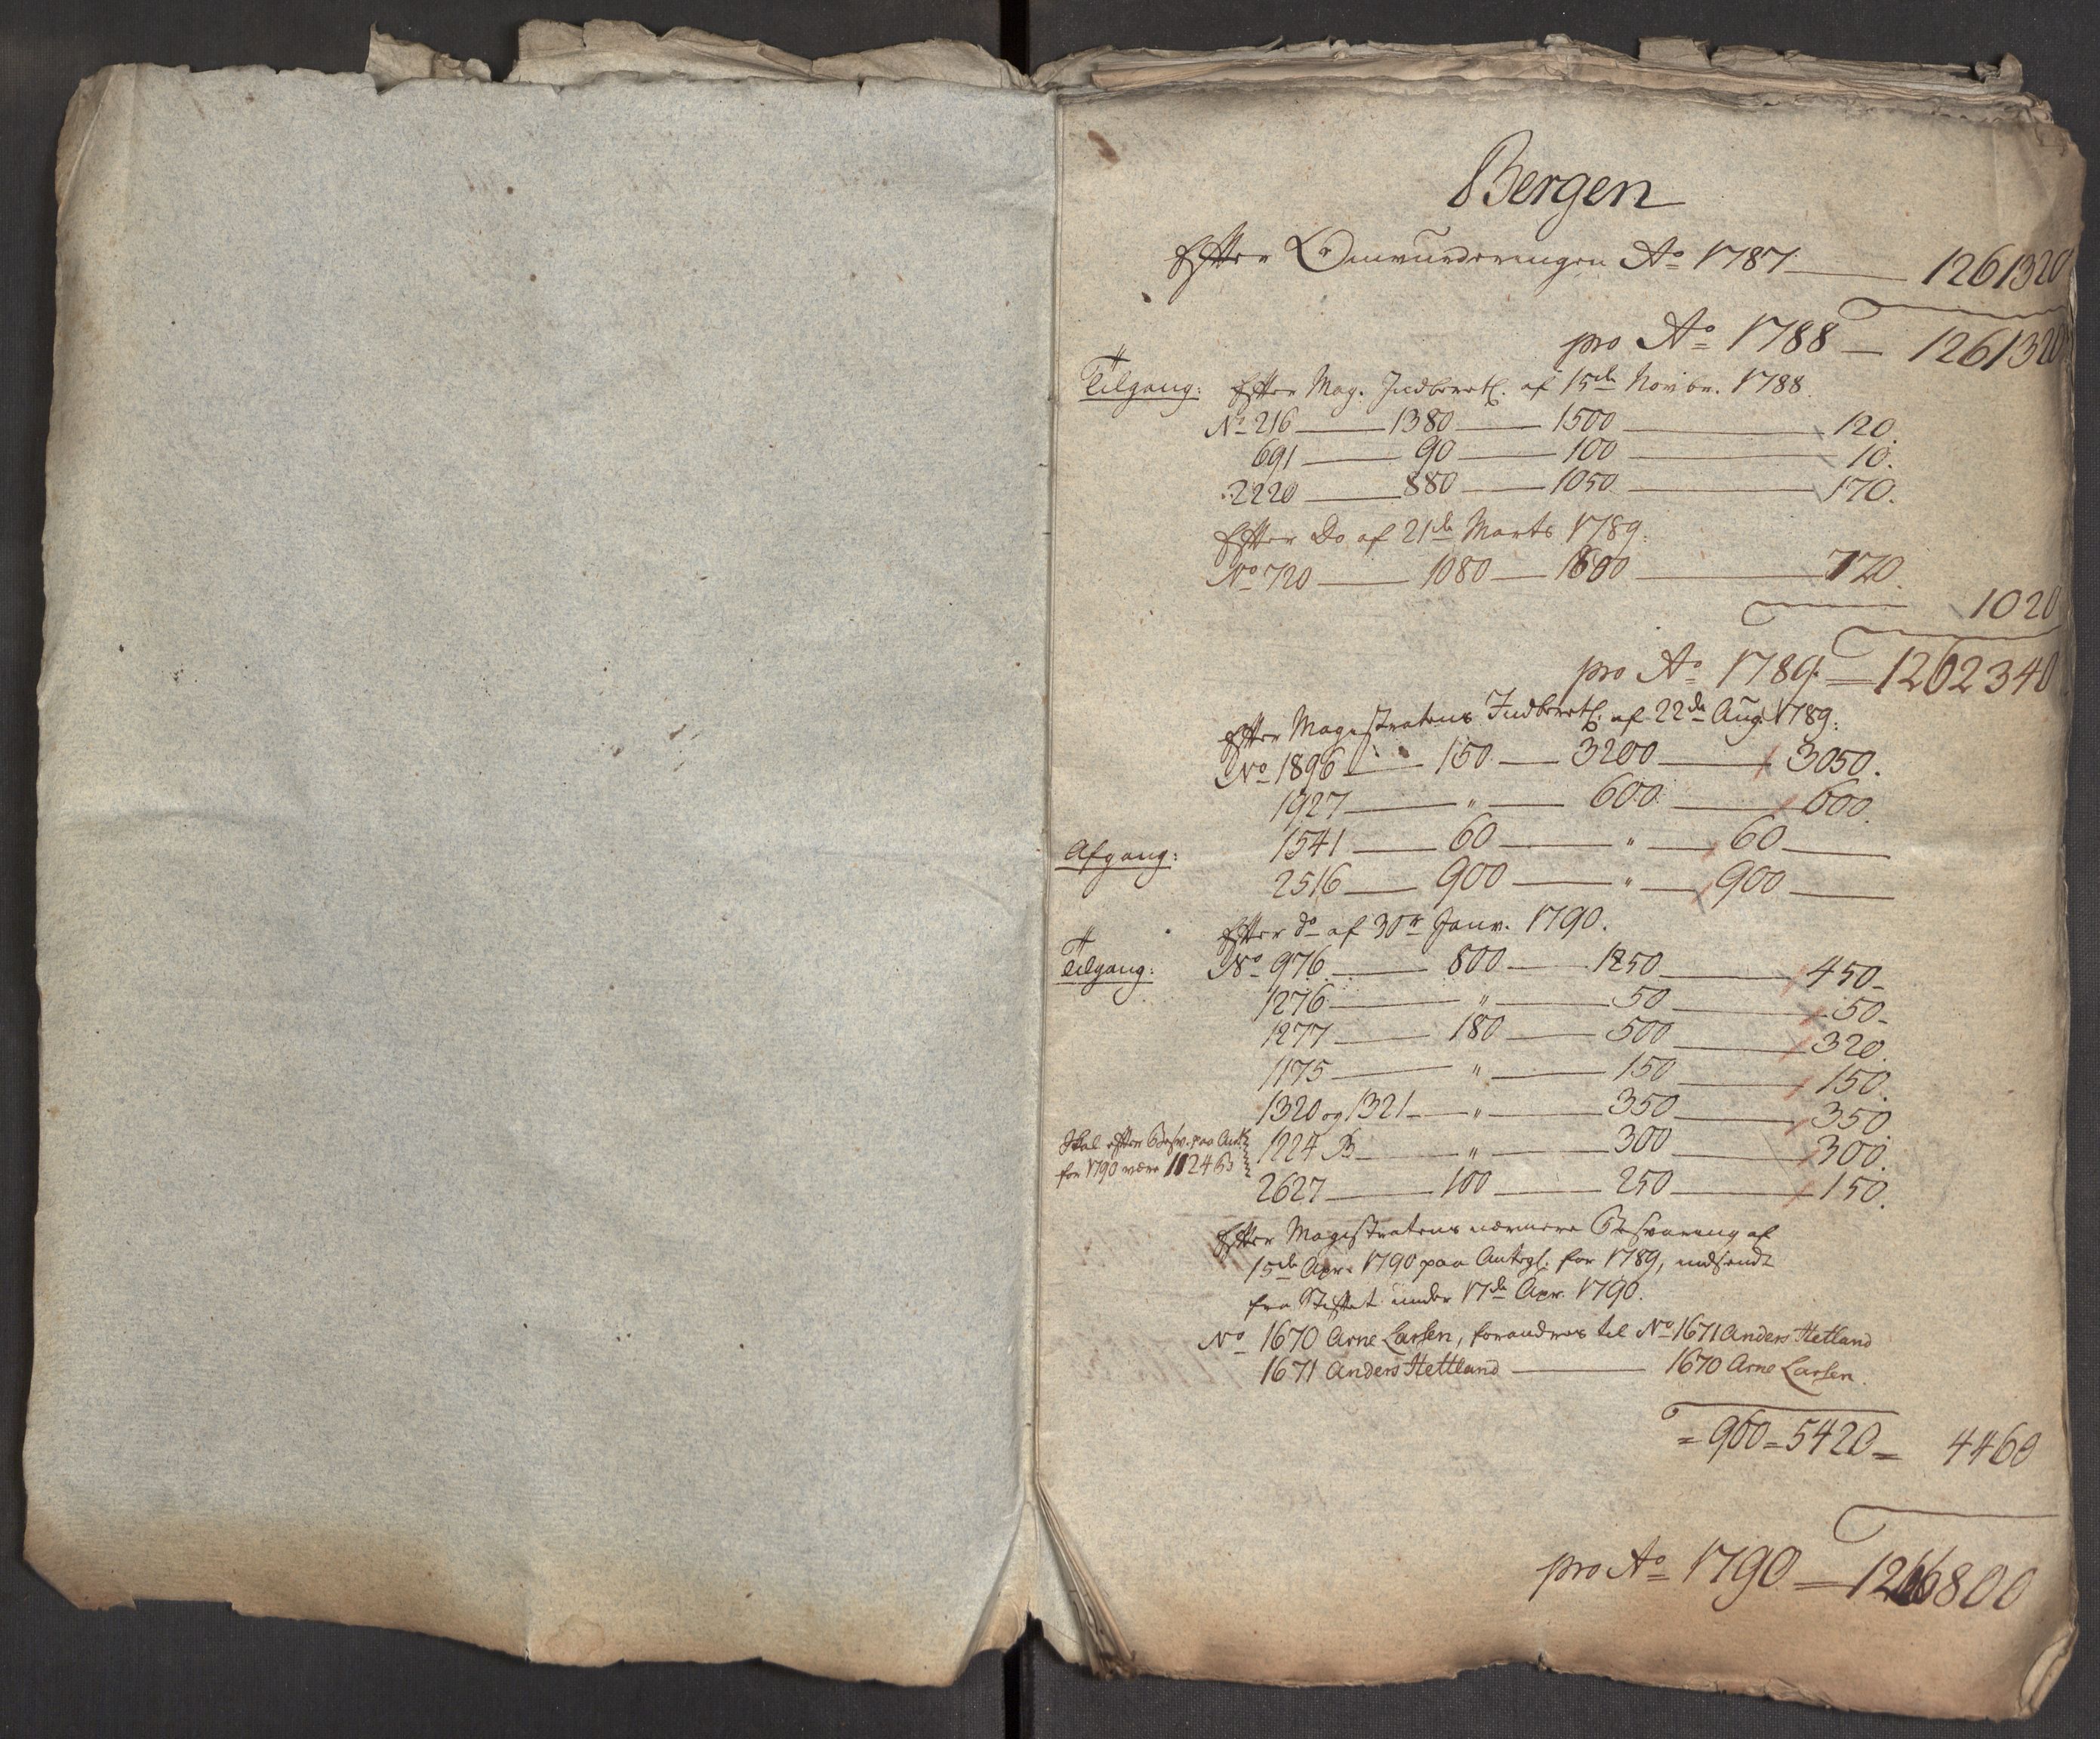 Bergen
Efter Omvurderingen Ao 1787 — 1261320
pro Ao 1788 — 1261320
Tilgang: Efter Mag. Indberetn. af 15de Novbr. 1788.
No 216 — 1380 — 1500 — 120.
691 — 90 — 100 — 10.
2220 — 880 — 1050 — 170.
Efter Do af 21de Marts 1789.
No 720 — 1080 — 1800 — 720.
1020
pro Ao 1789 = 1262340
Efter Magistratens Indberetn. af 22de Aug. 1789.
No 1896 — 150 — 3200 — 3050.
1927 — " — 600 — 600.
Afgang: 1541 — 60 — " — 60 —
2516 — 900 — " — 900 —
Efter do af 30te Janv. 1790.
Tilgang: No 976 — 800 — 1250 — 450-
1276 — " — 50 — 50-
1277 — 180 — 500 — 320.
1175 — " — 150 — 150.
1320 og 1321 — " — 350 — 350
Skal efter Besv. paa Ant. 1224 B — " — 300 — 300.
for 1790 være 1124 B
2627 — 100 — 250 — 150.
Efter Magistratens nærmere Besvaring af
15de Apr. 1790 paa Antegn. for 1789, indsendt
fra Stiftet under 17de Apr. 1790.
No 1670 Arne Larsen, forandres til No 1671 Anders Hetland
1671 Anders Hettland — 1670 Arne Larsen.
= 960 = 5420 = 4460
pro Ao 1790 = 1266800